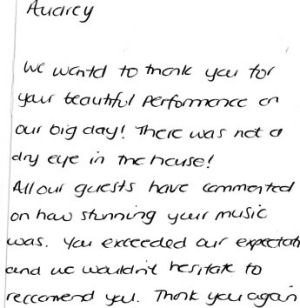 Audrey
We wantd to thank you for
your beautiful performance on
our big day! There was not a
dry eye in the house!
All our guests have commented
on how stunning your music
was. You exceeded our expectati
and we wouldn't hesitate to
reccomend you. Thank you again